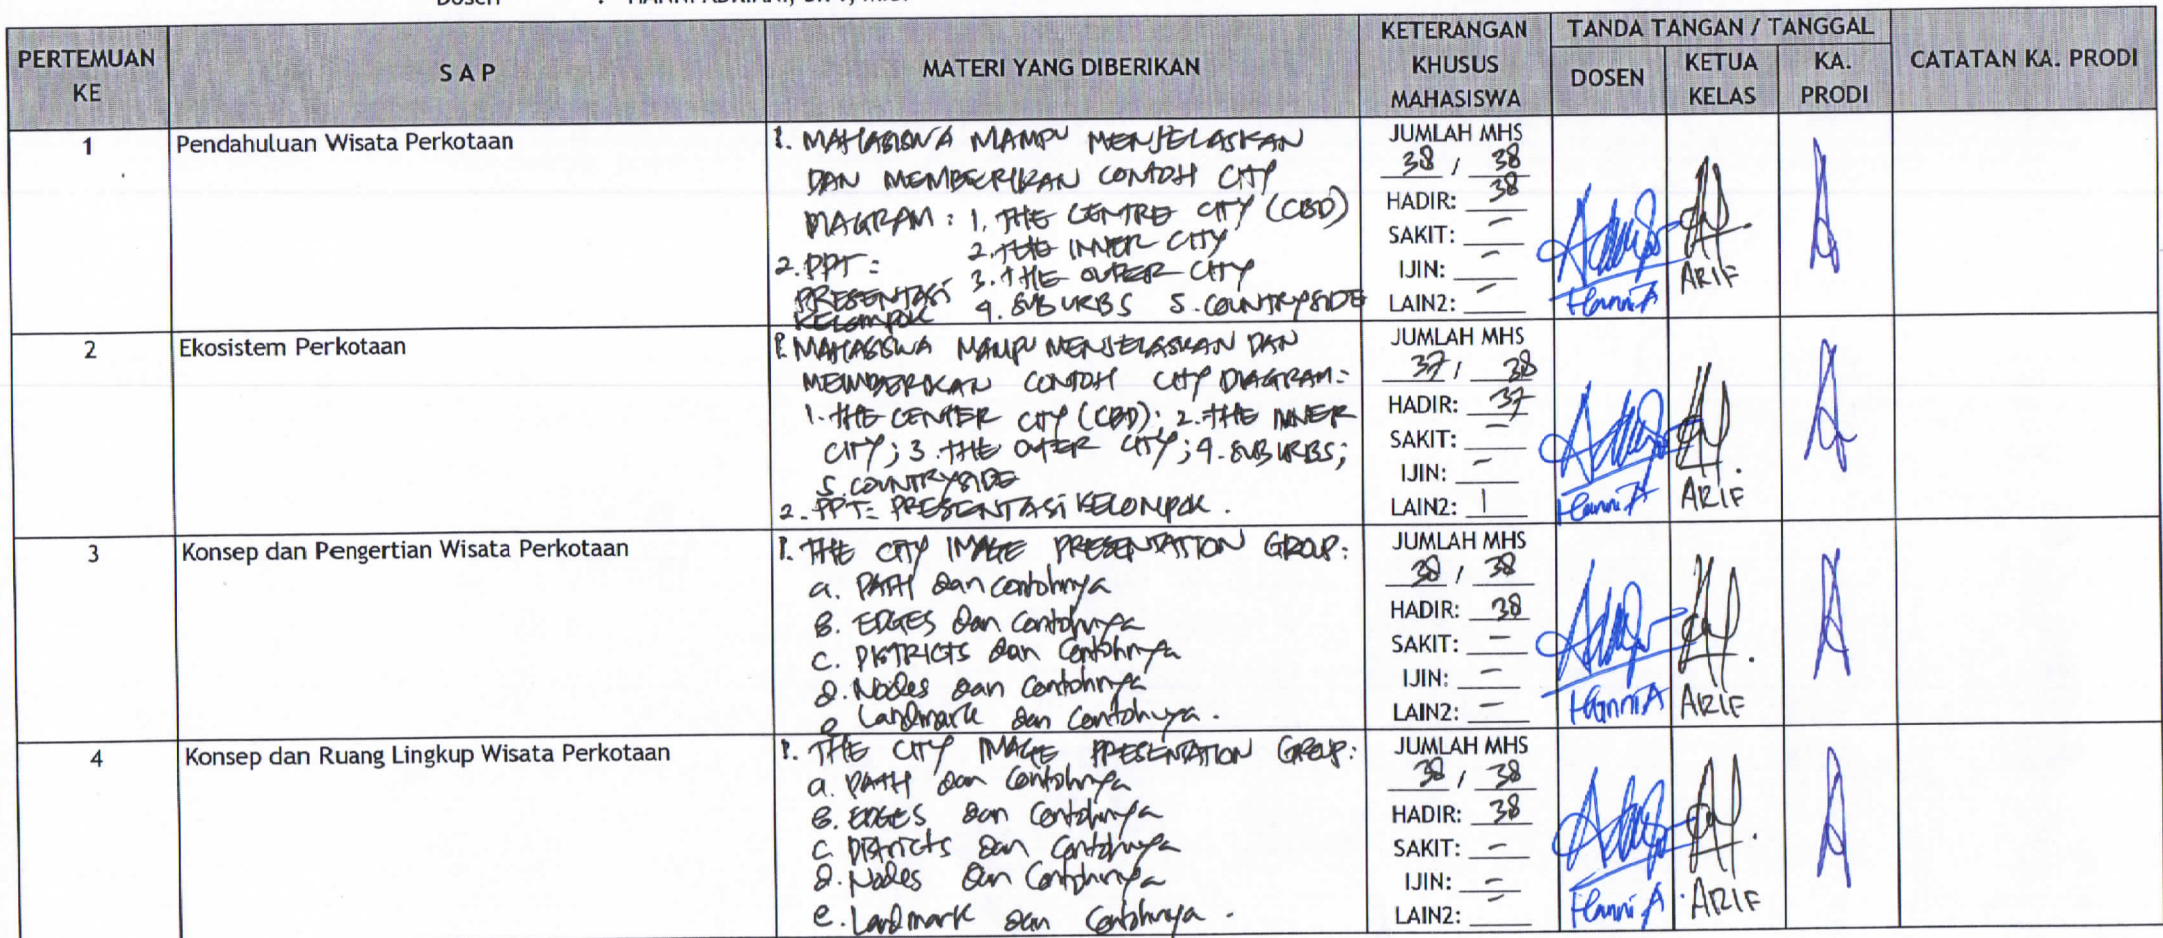 PERTEMUAN KE
S A P
MATERI YANG DIBERIKAN
KETERANGAN KHUSUS MAHASISWA
TANDA TANGAN / TANGGAL
DOSEN
KETUA KELAS
KA. PRODI
CATATAN KA. PRODI
1
Pendahuluan Wisata Perkotaan
1. MAHASISWA MAMPU MENJELASKAN
DAN MEMBERIKAN CONTOH CITY
DIAGRAM : 1. THE CENTRE CITY (CBD)
2. THE INNER CITY
2. PPT :
3. THE OUTER CITY
PRESENTASI
KELOMPOK
4. SUBURBS 5. COUNTRYSIDE
JUMLAH MHS
38 / 38
HADIR: 38
SAKIT: -
IJIN: -
LAIN2: -
Hanni A
ARIF
2
Ekosistem Perkotaan
1. MAHASISWA MAMPU MENJELASKAN DAN
MEMBERIKAN CONTOH CITY DIAGRAM :
1. THE CENTER CITY (CBD); 2. THE INNER
CITY; 3. THE OUTER CITY; 4. SUBURBS;
5. COUNTRYSIDE
2. PPT : PRESENTASI KELOMPOK.
JUMLAH MHS
37 / 38
HADIR: 37
SAKIT: -
IJIN: -
LAIN2: 1
Hanni A
ARIF
3
Konsep dan Pengertian Wisata Perkotaan
1. THE CITY IMAGE PRESENTATION GROUP :
a. PATH dan contohnya
B. EDGES dan contohnya
C. DISTRICTS dan contohnya
d. Nodes dan contohnya
e Landmark dan contohnya.
JUMLAH MHS
38 / 38
HADIR: 38
SAKIT: -
IJIN: -
LAIN2: -
Hanni A
ARIF
4
Konsep dan Ruang Lingkup Wisata Perkotaan
1. THE CITY IMAGE PRESENTATION GROUP :
a. PATH dan contohnya
B. EDGES dan contohnya
C. Districts dan contohnya
d. Nodes dan contohnya
e. Landmark dan contohnya.
JUMLAH MHS
38 / 38
HADIR: 38
SAKIT: -
IJIN: -
LAIN2: -
Hanni A
ARIF